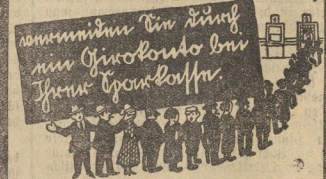 vermeiden Sie durch
ein Girokonto bei
Ihrer Sparkasse.